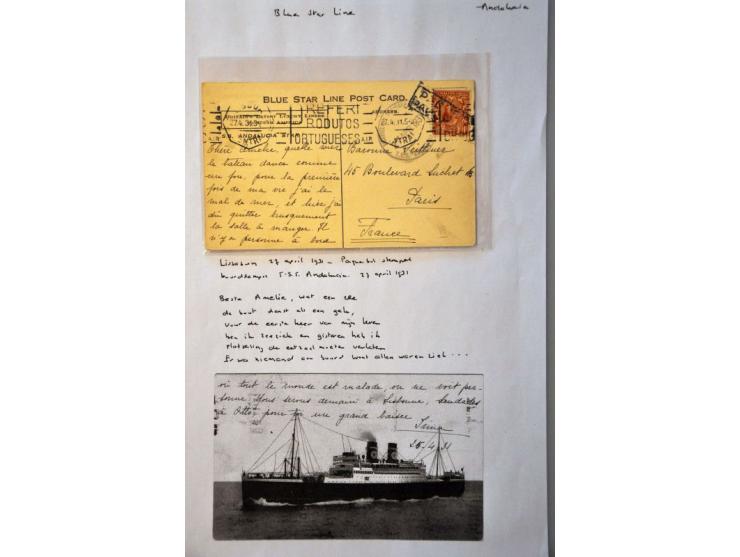 Blue Star Line
Andalucia
BLUE STAR LINE POST CARD.
S.S. ANDALUCIA STAR
ADDRESS.
27.4.31.5
PREFERI
PRODUTOS
PORTUGUESES
27.4.31.5
Chère Amélie, quelle mer
le bateau danse comme
un fou, pour la première
fois de ma vie j'ai le
mal de mer, et hier j'ai
dû quitter brusquement
la salle à manger. Il
n'y a personne à bord
Baronne
45 Boulevard Suchet
Paris
France
Lissabon 27 april 1931 - Paquebot stempel
boordstempel T.S.S. Andalucia 27 april 1931
Beste Amelie, wat een zee
de boot danst als een gek,
voor de eerste keer van mijn leven
ben ik zeeziek en gisteren heb ik
plotseling de eetzaal moeten verlaten
Er was niemand aan boord want allen waren ziek ...
où tout le monde est malade, on ne voit per-
sonne. Nous serons demain à Lisbonne,
à Otto pour toi une grand baiser
25.4.31